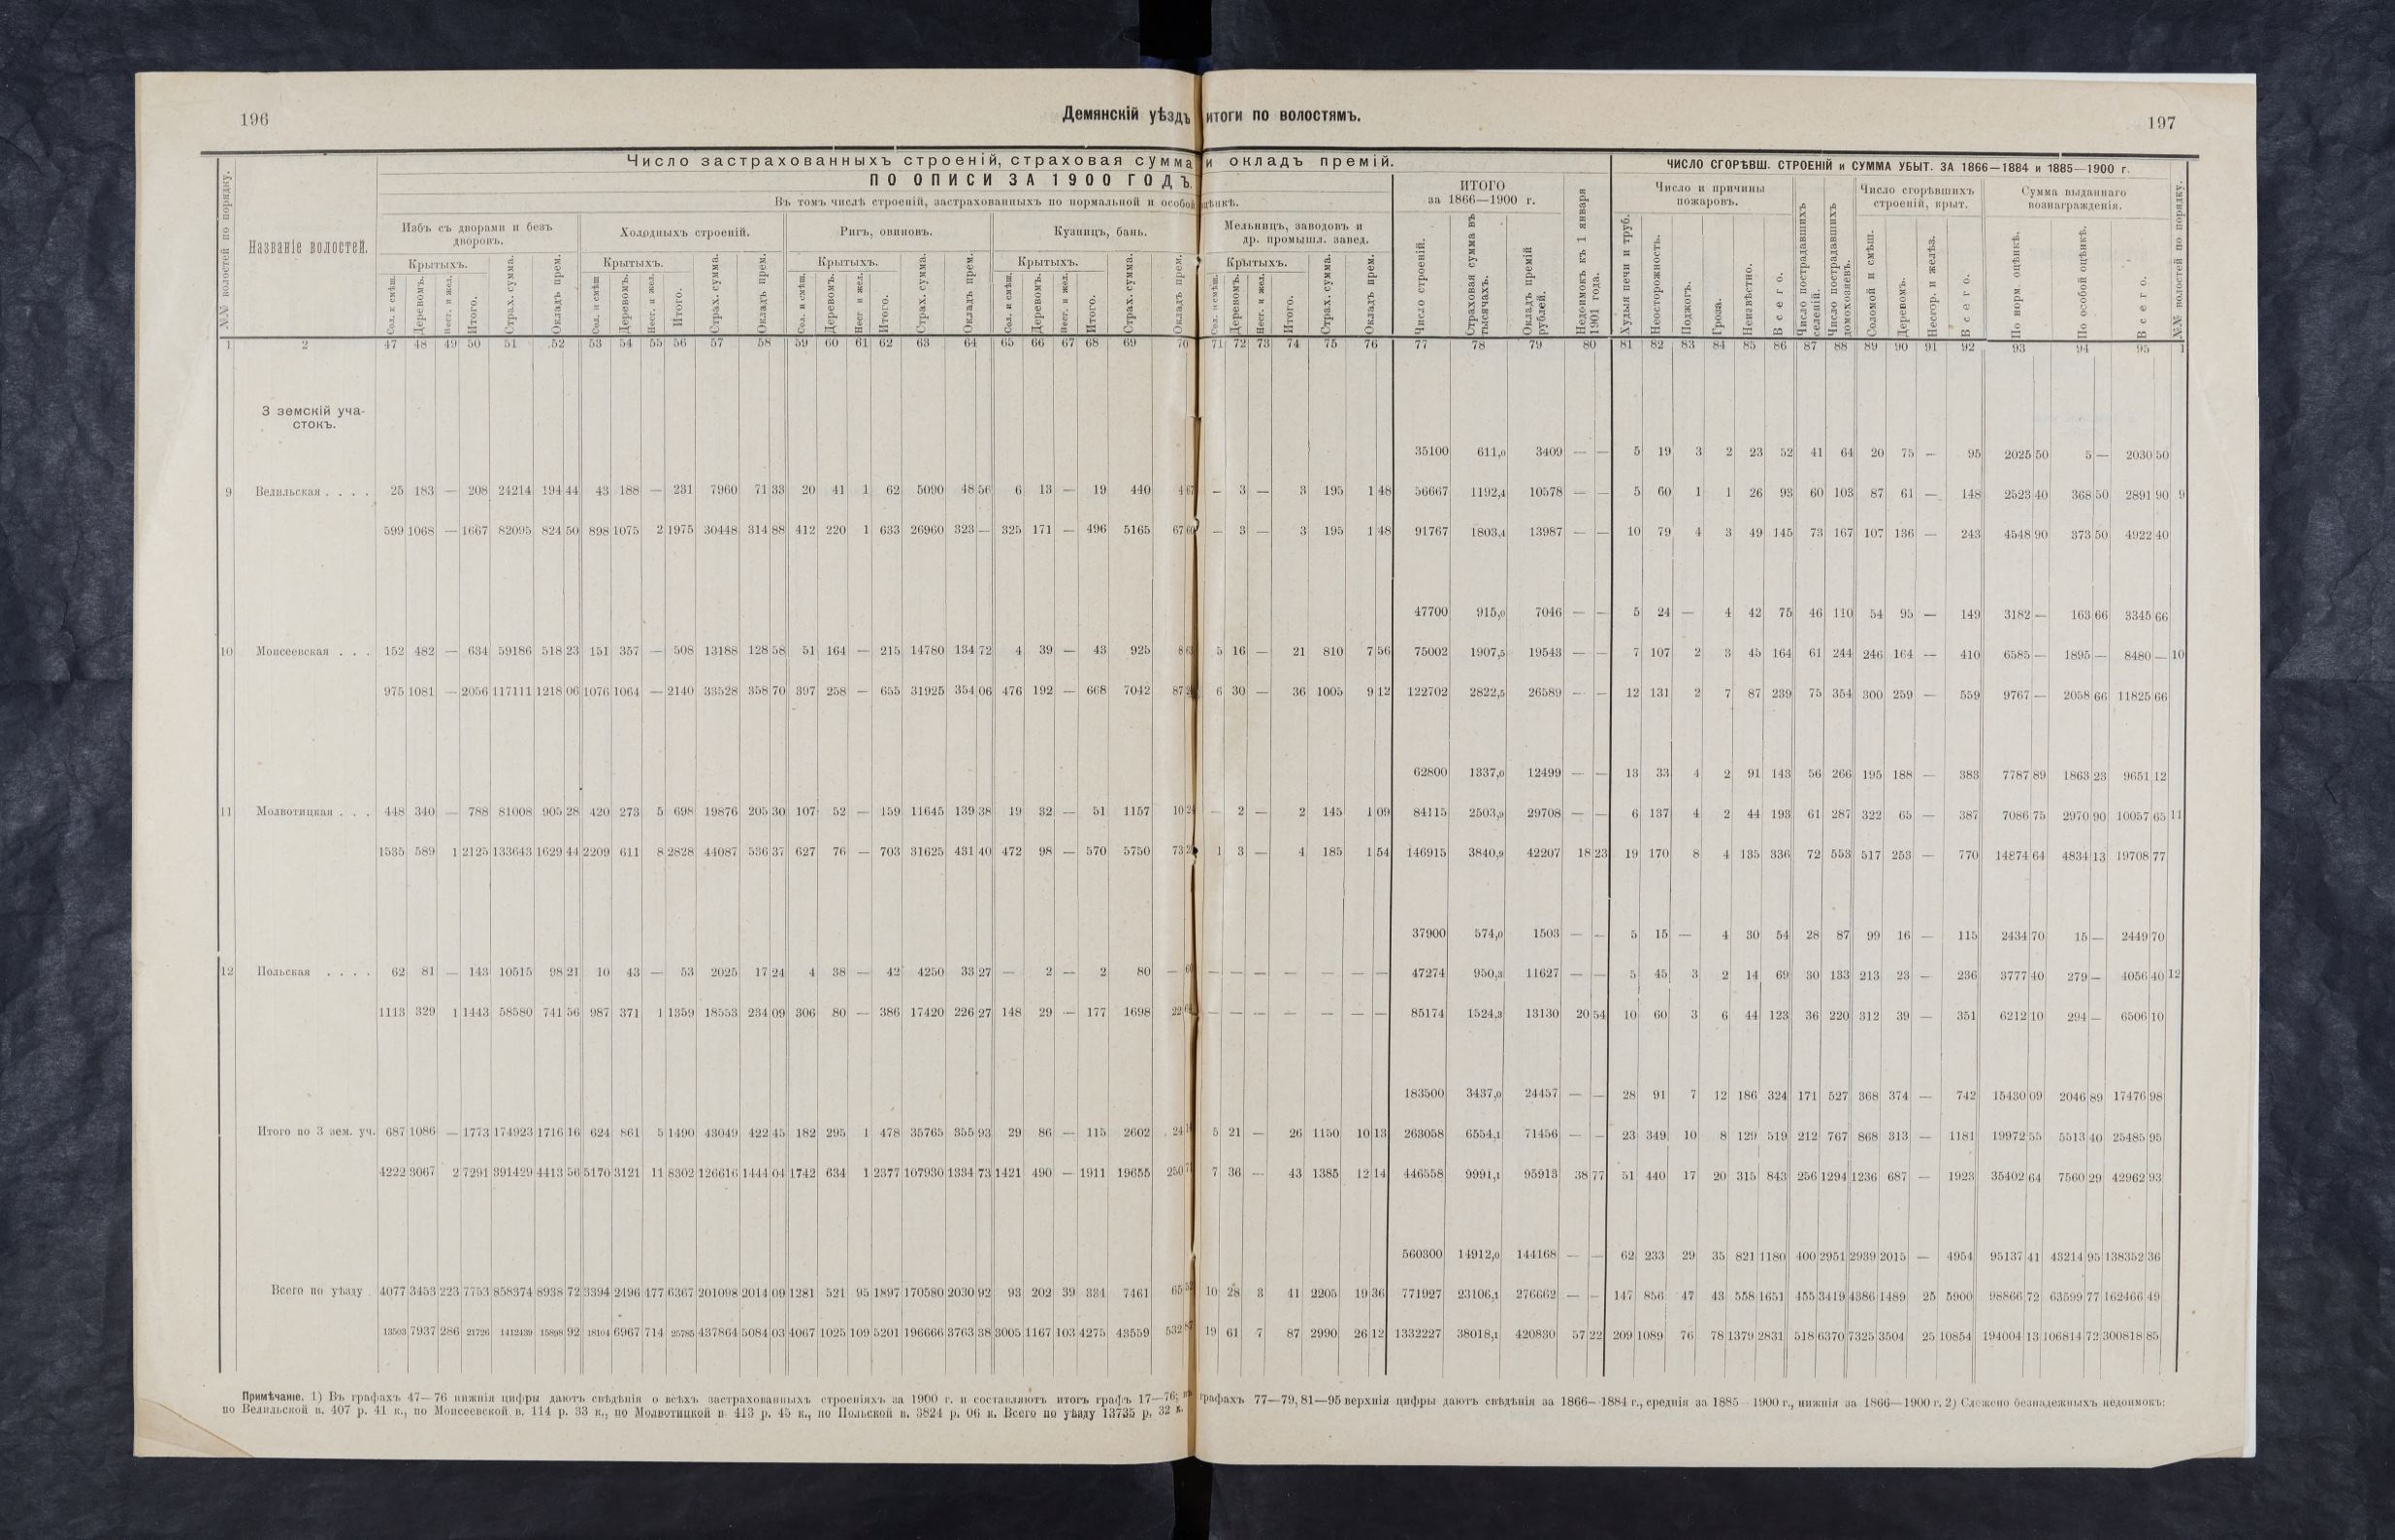 196
Демянскій уѣздъ итоги по волостямъ.
197
Число застрахованныхъ строеній, страховая сумма и окладъ премій.
ЧИСЛО СГОРѢВШ. СТРОЕНІЙ и СУММА УБЫТ. ЗА 1866—1884 и 1885—1900 г.
ПО ОПИСИ ЗА 1900 ГОДЪ.
Въ томъ числѣ строеній, застрахованныхъ по нормальной и особой оцѣнкѣ.
№№ волостей по порядку.
Названіе волостей.
Избъ съ дворами и безъ дворовъ.
Холодныхъ строеній.
Ригъ, овиновъ.
Кузницъ, бань.
Мельницъ, заводовъ и др. промышл. завед.
ИТОГО за 1866—1900 г.
Недоимокъ къ 1 января 1901 года.
Число и причины пожаровъ.
Число пострадавшихъ селеній.
Число пострадавшихъ домохозяевъ.
Число сгорѣвшихъ строеній, крыт.
Сумма выданнаго вознагражденія.
№№ волостей по порядку.
Крытыхъ. Крытыхъ. Крытыхъ. Крытыхъ. Крытыхъ.
Сол. и смѣш. Деревомъ. Несг. и жел. Итого. Страх. сумма. Окладъ прем.
Сол. и смѣш Деревомъ. Несг. и жел. Итого. Страх. сумма. Окладъ прем.
Сол. и смѣш. Деревомъ. Несг и жел. Итого. Страх. сумма. Окладъ прем.
Сол. и смѣш. Деревомъ. Несг. и жел. Итого. Страх. сумма. Окладъ прем.
Сол. и смѣш. Деревомъ. Несг. и жел. Итого. Страх. сумма. Окладъ прем.
Число строеній. Страховая сумма въ тысячахъ. Окладъ премій рублей.
Худыя печи и труб. Неосторожность. Поджогъ. Гроза. Неизвѣстно. Всего.
Соломой и смѣш. Деревомъ. Несгор. и желѣз. Всего.
По норм. оцѣнкѣ. По особой оцѣнкѣ. Всего.
1 2 47 48 49 50 51 52 53 54 55 56 57 58 59 60 61 62 63 64 65 66 67 68 69 70 71 72 73 74 75 76 77 78 79 80 81 82 83 84 85 86 87 88 89 90 91 92 93 94 95 1
3 земскій уча-
стокъ.
35100 611,0 3409 — — 5 19 3 2 23 52 41 64 20 75 — 95 2025 50 5 — 2030 50
9 Велильская . . . . 25 183 — 208 24214 194 44 43 188 — 231 7960 71 33 20 41 1 62 5090 48 56 6 13 — 19 440 4 67 — 3 — 3 195 1 48 56667 1192,4 10578 — — 5 60 1 1 26 93 60 103 87 61 — 148 2523 40 368 50 2891 90 9
599 1068 — 1667 82095 824 50 898 1075 2 1975 30448 314 88 412 220 1 633 26960 323 — 325 171 — 496 5165 67 60 — 3 — 3 195 1 48 91767 1803,4 13987 — — 10 79 4 3 49 145 73 167 107 136 — 243 4548 90 373 50 4922 40
47700 915,0 7046 — — 5 24 — 4 42 75 46 110 54 95 — 149 3182 — 163 66 3345 66
10 Моисеевская . . . 152 482 — 634 59186 518 23 151 357 — 508 13188 128 58 51 164 — 215 14780 134 72 4 39 — 43 925 8 63 5 16 — 21 810 7 56 75002 1907,5 19543 — — 7 107 2 3 45 164 61 244 246 164 — 410 6585 — 1895 — 8480 — 10
975 1081 — 2056 117111 1218 06 1076 1064 — 2140 33528 358 70 397 258 — 655 31925 354 06 476 192 — 668 7042 87 6 30 — 36 1005 9 12 122702 2822,5 26589 — — 12 131 2 7 87 239 75 354 300 259 — 559 9767 — 2058 66 11825 66
62800 1337,0 12499 — — 13 33 4 2 91 143 56 266 195 188 — 383 7787 89 1863 23 9651 12
11 Молвотицкая . . . 448 340 — 788 81008 905 28 420 273 5 698 19876 205 30 107 52 — 159 11645 139 38 19 32 — 51 1157 10 — 2 — 2 145 1 09 84115 2503,9 29708 — — 6 137 4 2 44 193 61 287 322 65 — 387 7086 75 2970 90 10057 65 11
1535 589 1 2125 133643 1629 44 2209 611 8 2828 44087 536 37 627 76 — 703 31625 431 40 472 98 — 570 5750 73 1 3 — 4 185 1 54 146915 3840,9 42207 18 23 19 170 8 4 135 336 72 553 517 253 — 770 14874 64 4834 13 19708 77
37900 574,0 1503 — — 5 15 — 4 30 54 28 87 99 16 — 115 2434 70 15 — 2449 70
12 Польская . . . . 62 81 — 143 10515 98 21 10 43 — 53 2025 17 24 4 38 — 42 4250 33 27 — 2 — 2 80 — — — — — — — 47274 950,3 11627 — — 5 45 3 2 14 69 30 133 213 23 — 236 3777 40 279 — 4056 40 12
1113 329 1 1443 58580 741 56 987 371 1 1359 18553 234 09 306 80 — 386 17420 226 27 148 29 — 177 1698 22 — — — — — — 85174 1524,3 13130 20 54 10 60 3 6 44 123 36 220 312 39 — 351 6212 10 294 — 6506 10
183500 3437,0 24457 — — 28 91 7 12 186 324 171 527 368 374 — 742 15430 09 2046 89 17476 98
Итого по 3 зем. уч. 687 1086 — 1773 174923 1716 16 624 861 5 1490 43049 422 45 182 295 1 478 35765 355 93 29 86 — 115 2602 24 5 21 — 26 1150 10 13 263058 6554,1 71456 — — 23 349 10 8 129 519 212 767 868 313 — 1181 19972 55 5513 40 25485 95
4222 3067 2 7291 391429 4413 56 5170 3121 11 8302 126616 1444 04 1742 634 1 2377 107930 1334 73 1421 490 — 1911 19655 250 7 36 — 43 1385 12 14 446558 9991,1 95913 38 77 51 440 17 20 315 843 256 1294 1236 687 — 1923 35402 64 7560 29 42962 93
560300 14912,0 144168 — — 62 233 29 35 821 1180 400 2951 2939 2015 — 4954 95137 41 43214 95 138352 36
Всего по уѣзду . 4077 3453 223 7753 858374 8938 72 3394 2496 477 6367 201098 2014 09 1281 521 95 1897 170580 2030 92 93 202 39 334 7461 65 10 28 3 41 2205 19 36 771927 23106,1 276662 — — 147 856 47 43 558 1651 455 3419 4386 1489 25 5900 98866 72 63599 77 162466 49
13503 7937 286 21726 1412439 15898 92 18104 6967 714 25785 437864 5084 03 4067 1025 109 5201 196666 3763 38 3005 1167 103 4275 43559 532 19 61 7 87 2990 26 12 1332227 38018,1 420830 57 22 209 1089 76 78 1379 2831 518 6370 7325 3504 25 10854 194004 13 106814 72 300818 85
Примѣчаніе. 1) Въ графахъ 47—76 нижнія цифры даютъ свѣдѣнія о всѣхъ застрахованныхъ строеніяхъ за 1900 г. и составляютъ итогъ графъ 17—76; въ графахъ 77—79, 81—95 верхнія цифры даютъ свѣдѣнія за 1866—1884 г., среднія за 1885—1900 г., нижнія за 1866—1900 г. 2) Сложено безнадежныхъ недоимокъ:
по Велильской в. 407 р. 41 к., по Моисеевской в. 114 р. 33 к., по Молвотицкой в. 413 р. 45 к., по Польской в. 3824 р. 06 к. Всего по уѣзду 13735 р. 32 к.